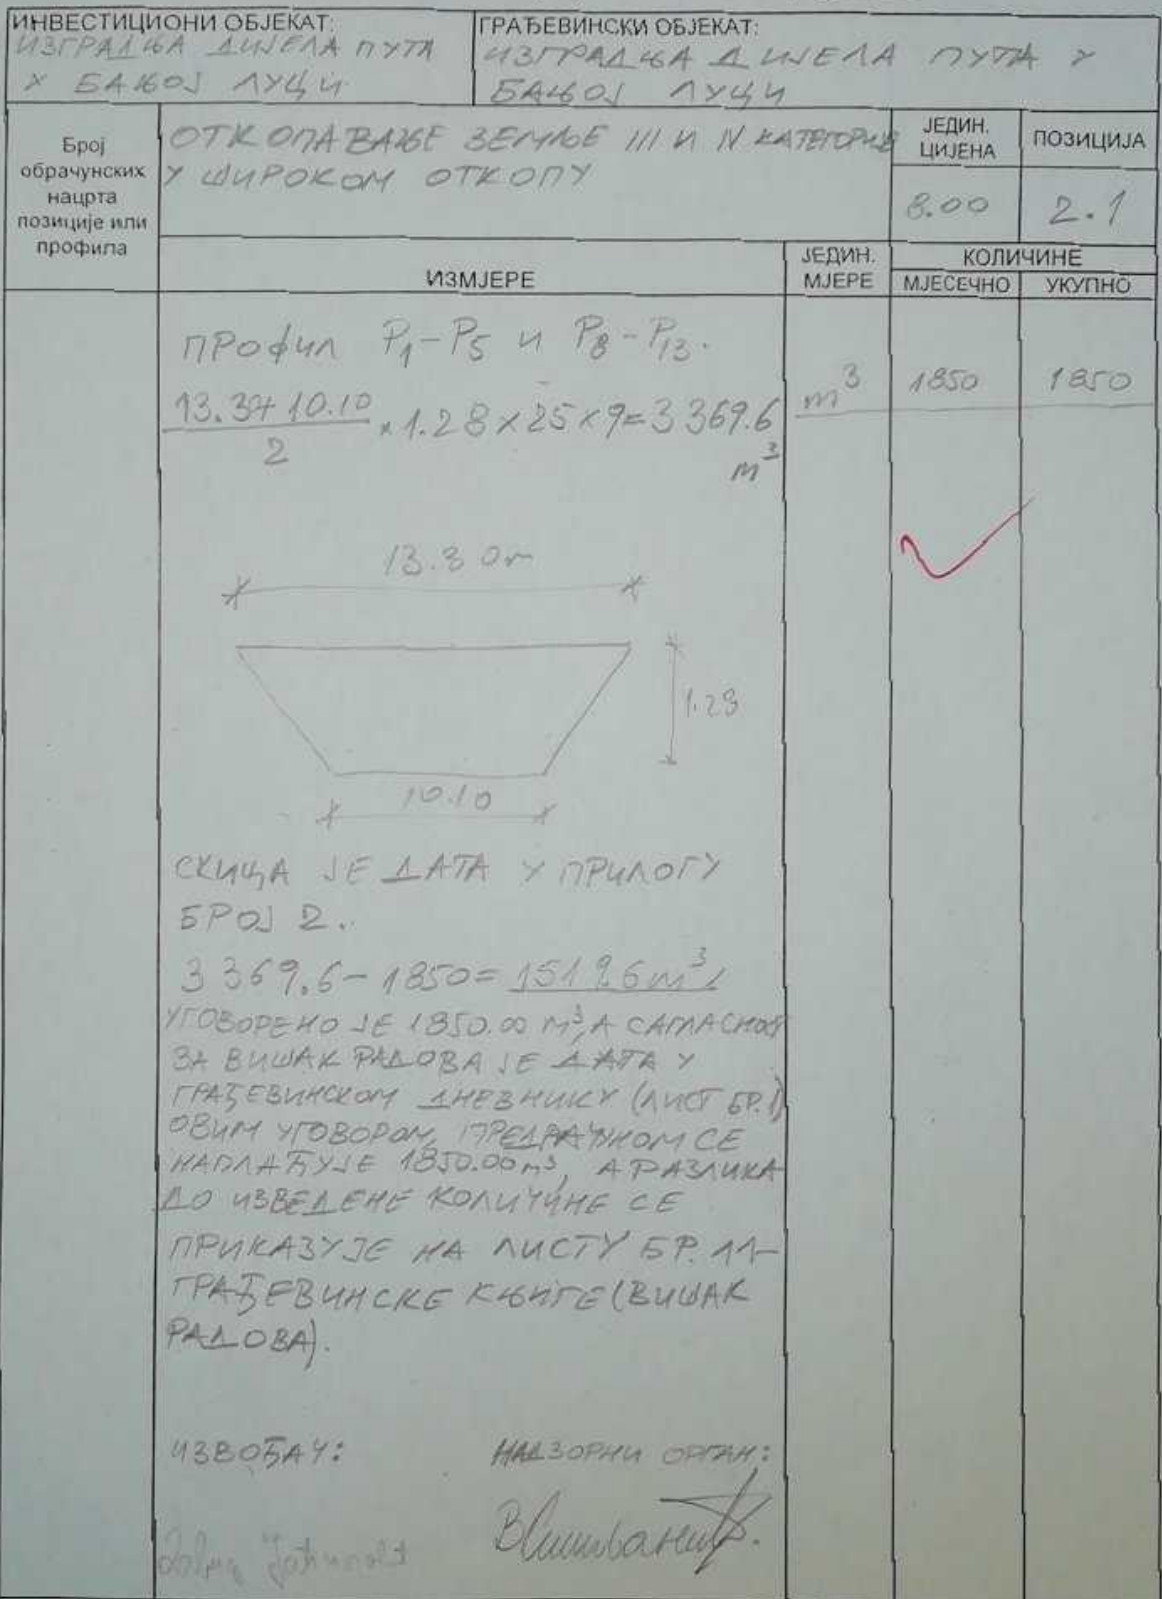 ИНВЕСТИЦИОНИ ОБЈЕКАТ:
ИЗГРАДЊА ДИЈЕЛА ПУТА
У БАЊОЈ ЛУЦИ
ГРАЂЕВИНСКИ ОБЈЕКАТ:
ИЗГРАДЊА ДИЈЕЛА ПУТА У
БАЊОЈ ЛУЦИ
Број
обрачунских
нацрта
позиције или
профила
ОТКОПАВАЊЕ ЗЕМЉЕ III И IV КАТЕГОРИЈЕ
У ШИРОКОМ ОТКОПУ
ЈЕДИН.
ЦИЈЕНА
ПОЗИЦИЈА
8.00
2.1
ИЗМЈЕРЕ
ЈЕДИН.
МЈЕРЕ
КОЛИЧИНЕ
МЈЕСЕЧНО
УКУПНО
ПРОФИЛ P1-P5 И P8-P13.
13.3+10.10
2
×1.28×25×9=3369.6
m³
m³
1850
1850
13.30m
1.28
10.10
СКИЦА ЈЕ ДАТА У ПРИЛОГУ
БРОЈ 2.
3369.6-1850=1519.6m³
УГОВОРЕНО ЈЕ 1850.00 m³, А САГЛАСНОСТ
ЗА ВИШАК РАДОВА ЈЕ ДАТА У
ГРАЂЕВИНСКОМ ДНЕВНИКУ (ЛИСТ БР.1)
ОВИМ УГОВОРОМ, ПРЕДРАЧУНОМ СЕ
НАПЛАЋУЈЕ 1850.00m³, А РАЗЛИКА
ДО ИЗВЕДЕНЕ КОЛИЧИНЕ СЕ
ПРИКАЗУЈЕ НА ЛИСТУ БР. 11-
ГРАЂЕВИНСКЕ КЊИГЕ (ВИШАК
РАДОВА).
ИЗВОЂАЧ:
НАДЗОРНИ ОРГАН: